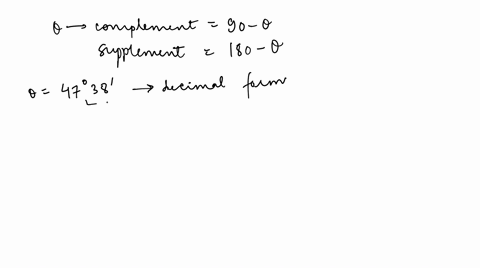 θ → complement = 90 - θ
supplement = 180 - θ
θ = 47°38' → decimal form